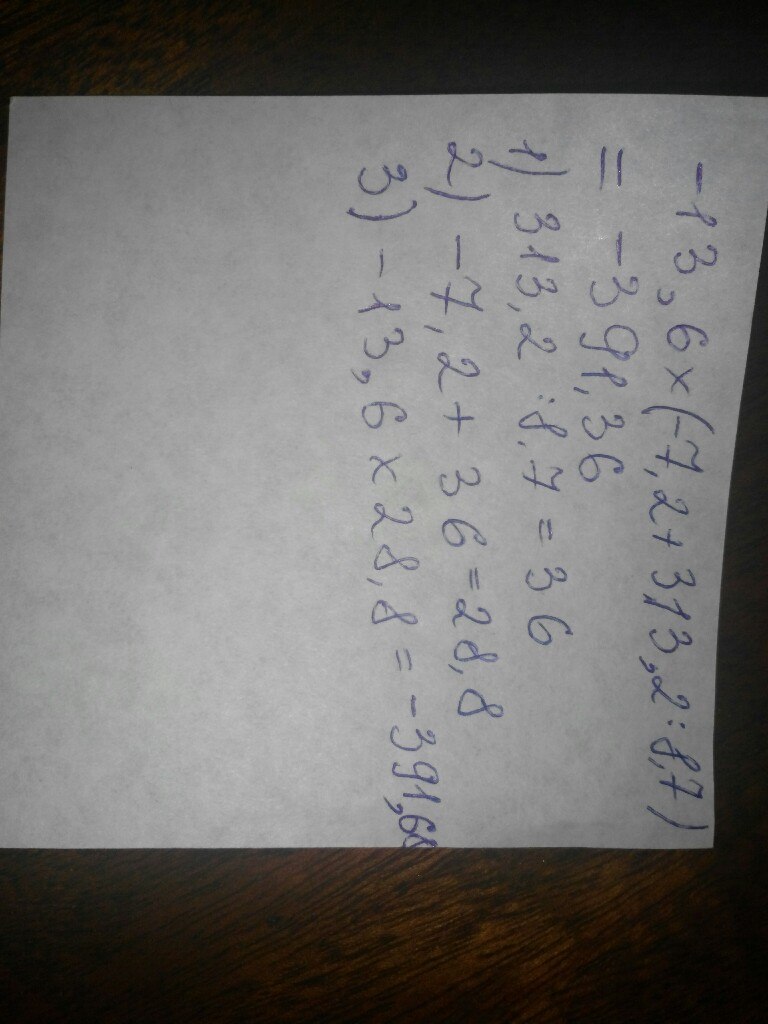 -13,6×(-7,2+313,2:8,7)
= -391,36
1) 313,2:8,7=36
2) -7,2+36=28,8
3) -13,6×28,8=-391,68